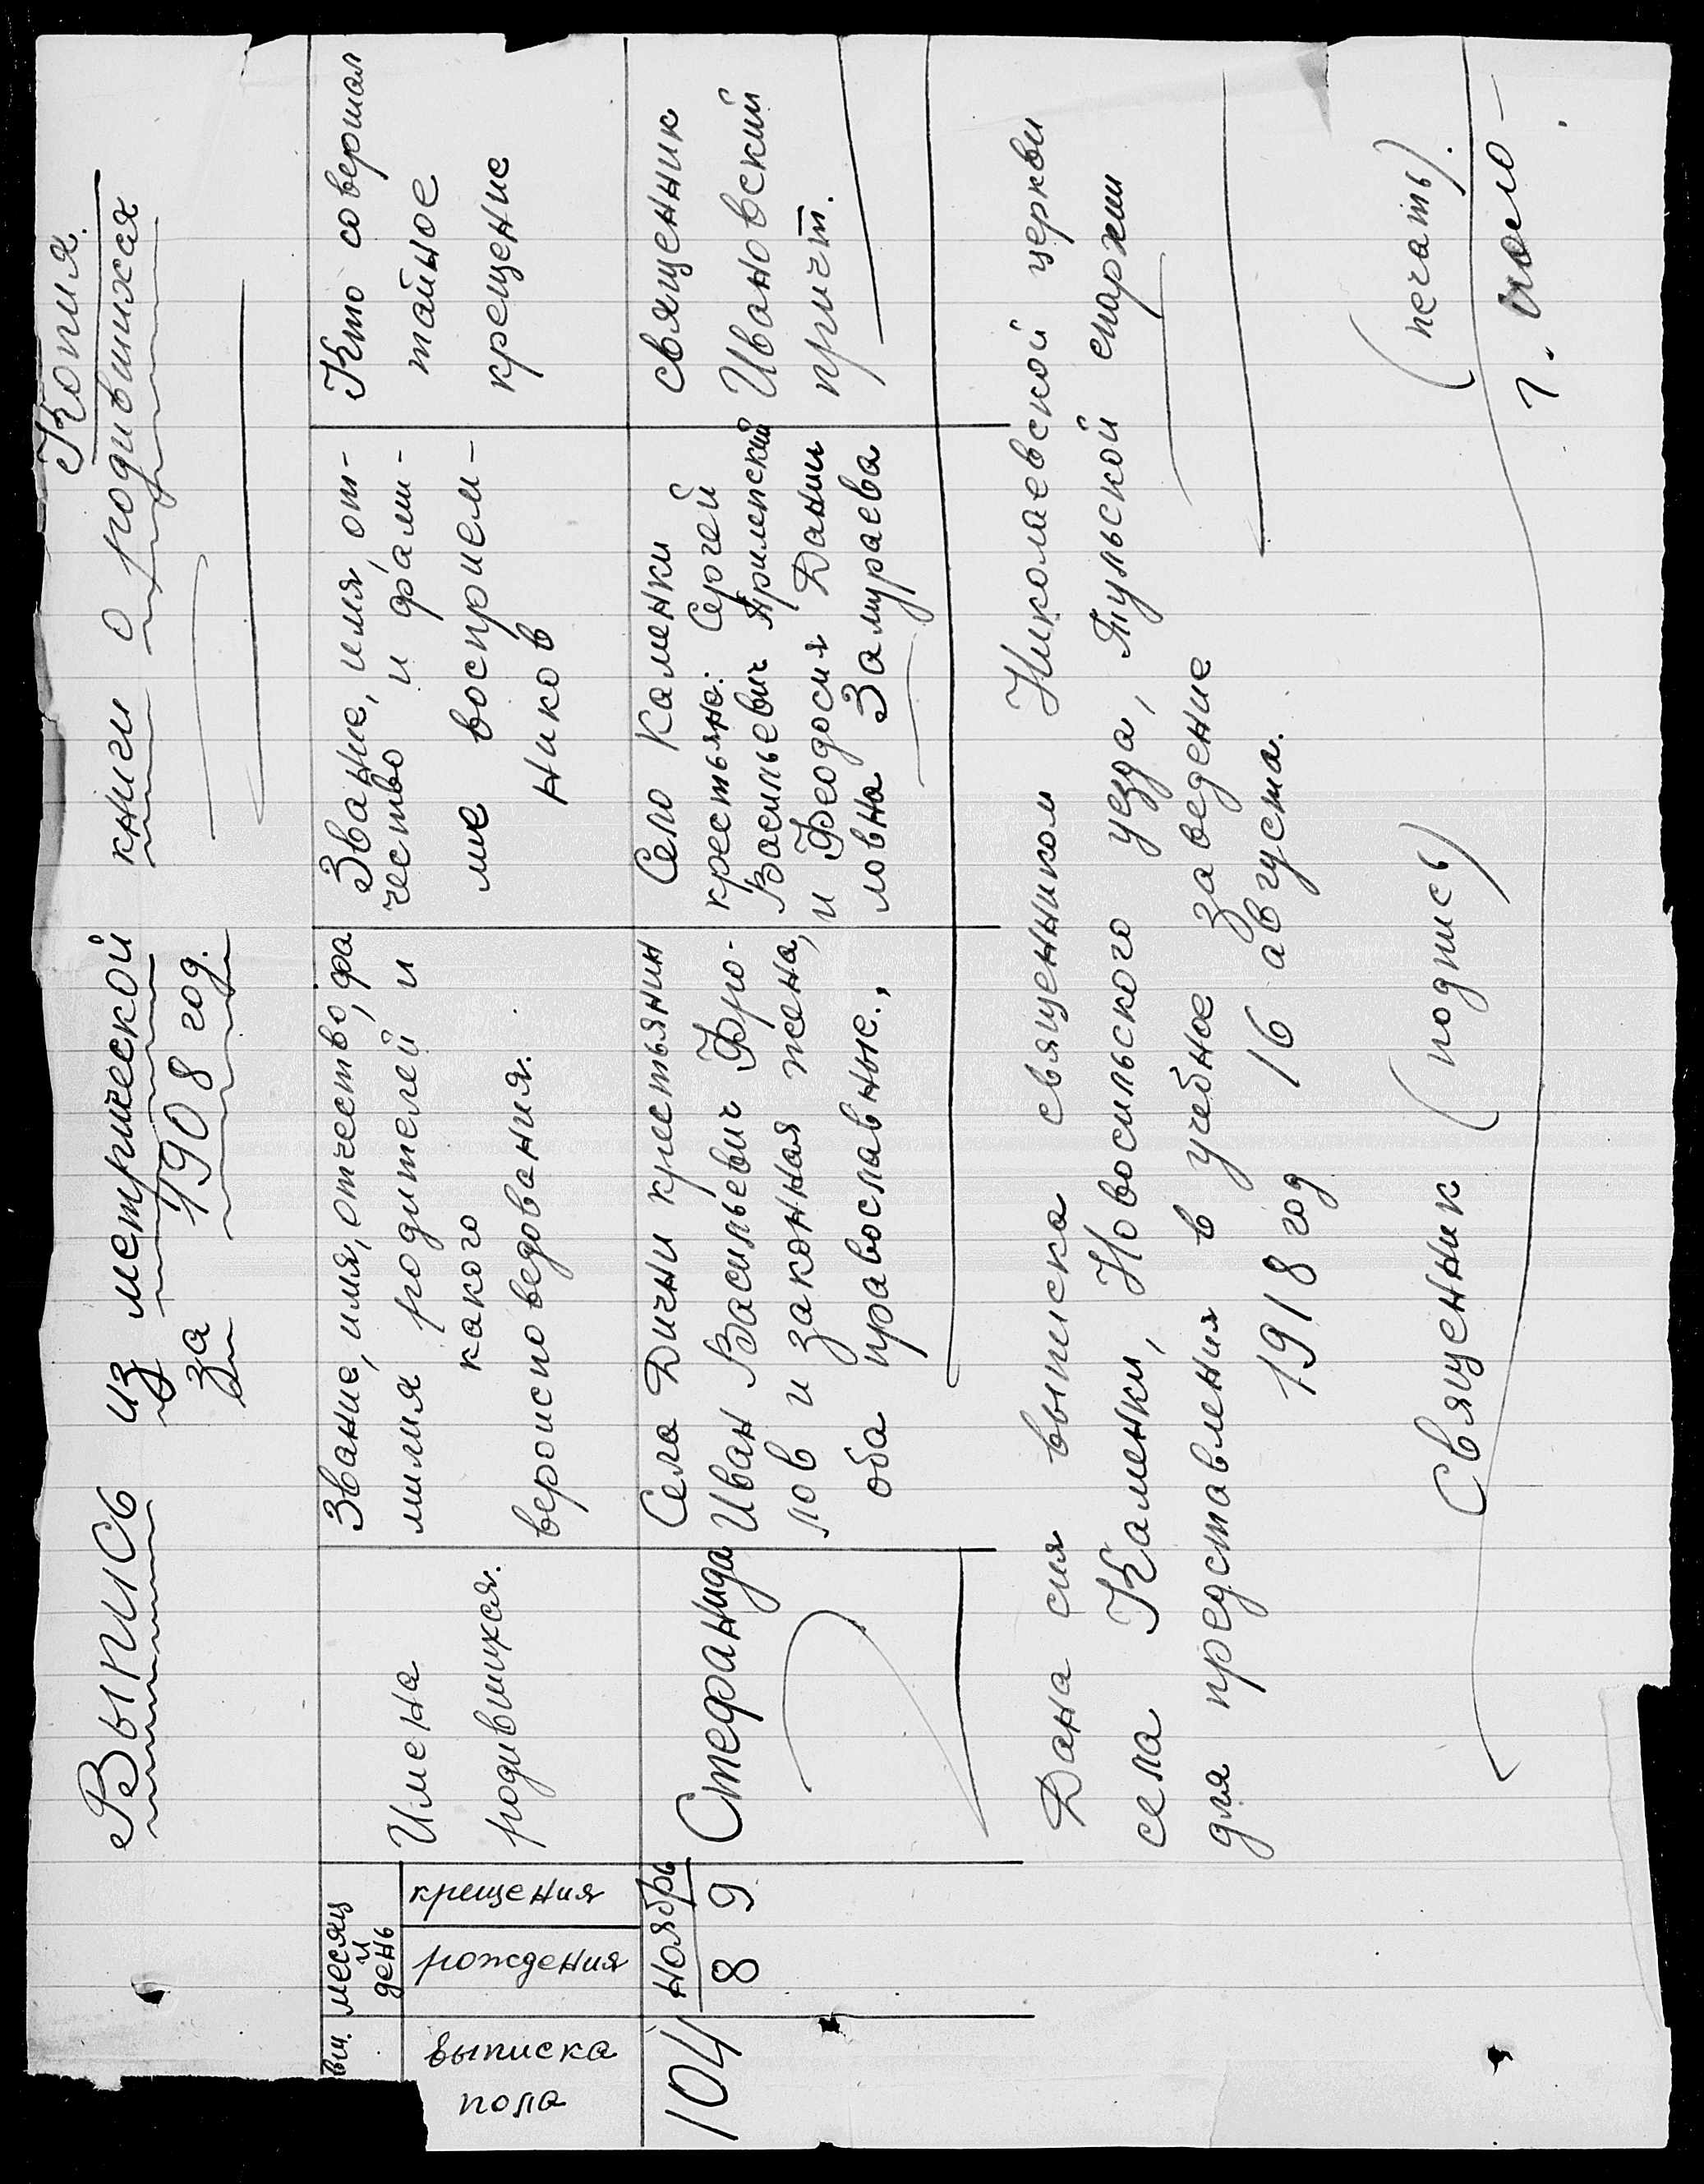 Копия.
Выпись из метрической книги о родившихся
за 1908 год.
вы. месяц
и
день
выписка
пола
рождения
крещения
Имена
родившихся.
Звание, имя, отчество, фа
милия родителей и
какого
вероисповедования.
Звание, имя, от-
чество и фами-
лие восприем-
ников
Кто совершал
тайное
крещение
104
ноябрь
8 9
Стефанида
Села Дични крестьянин
Иван Васильевич Фро-
лов и законная жена,
оба православные.,
Село Каменки
крестьяне: Сергей
Васильевич Прилепский
и Феодосия Дании
ловна Замураева
священник
Ивановский
причт.
Дана сия выписка священником Николаевской церкви
села Каменки, Новосильского уезда, Тульской епархии
для представления в учебное заведение
1918 год 16 августа.
Священник (подпись) (печать).